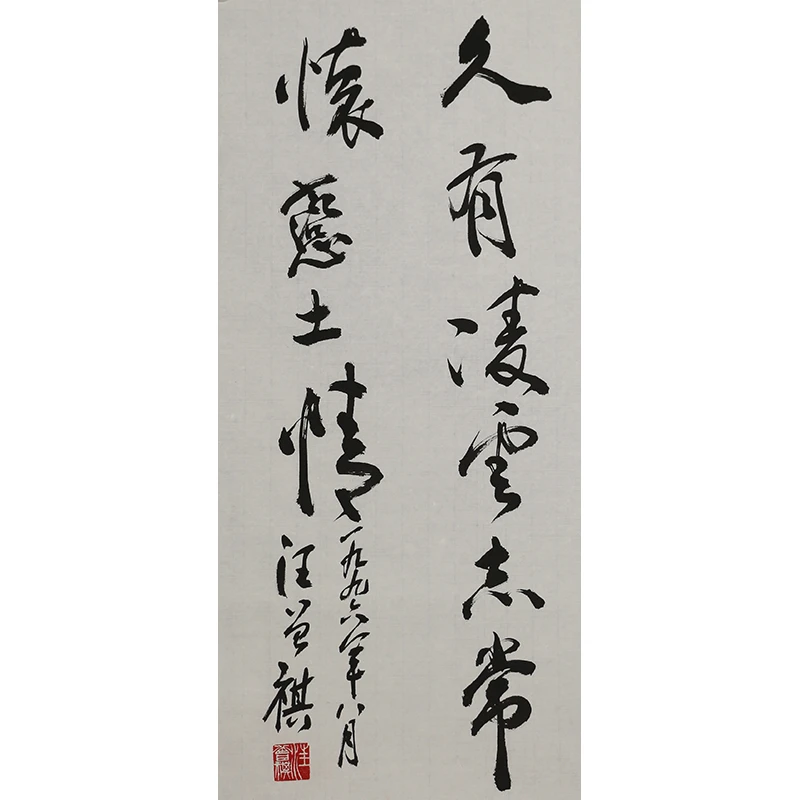 久有凌雲志常
懷戀土情
一九九六年八月
汪曾祺
汪曾祺